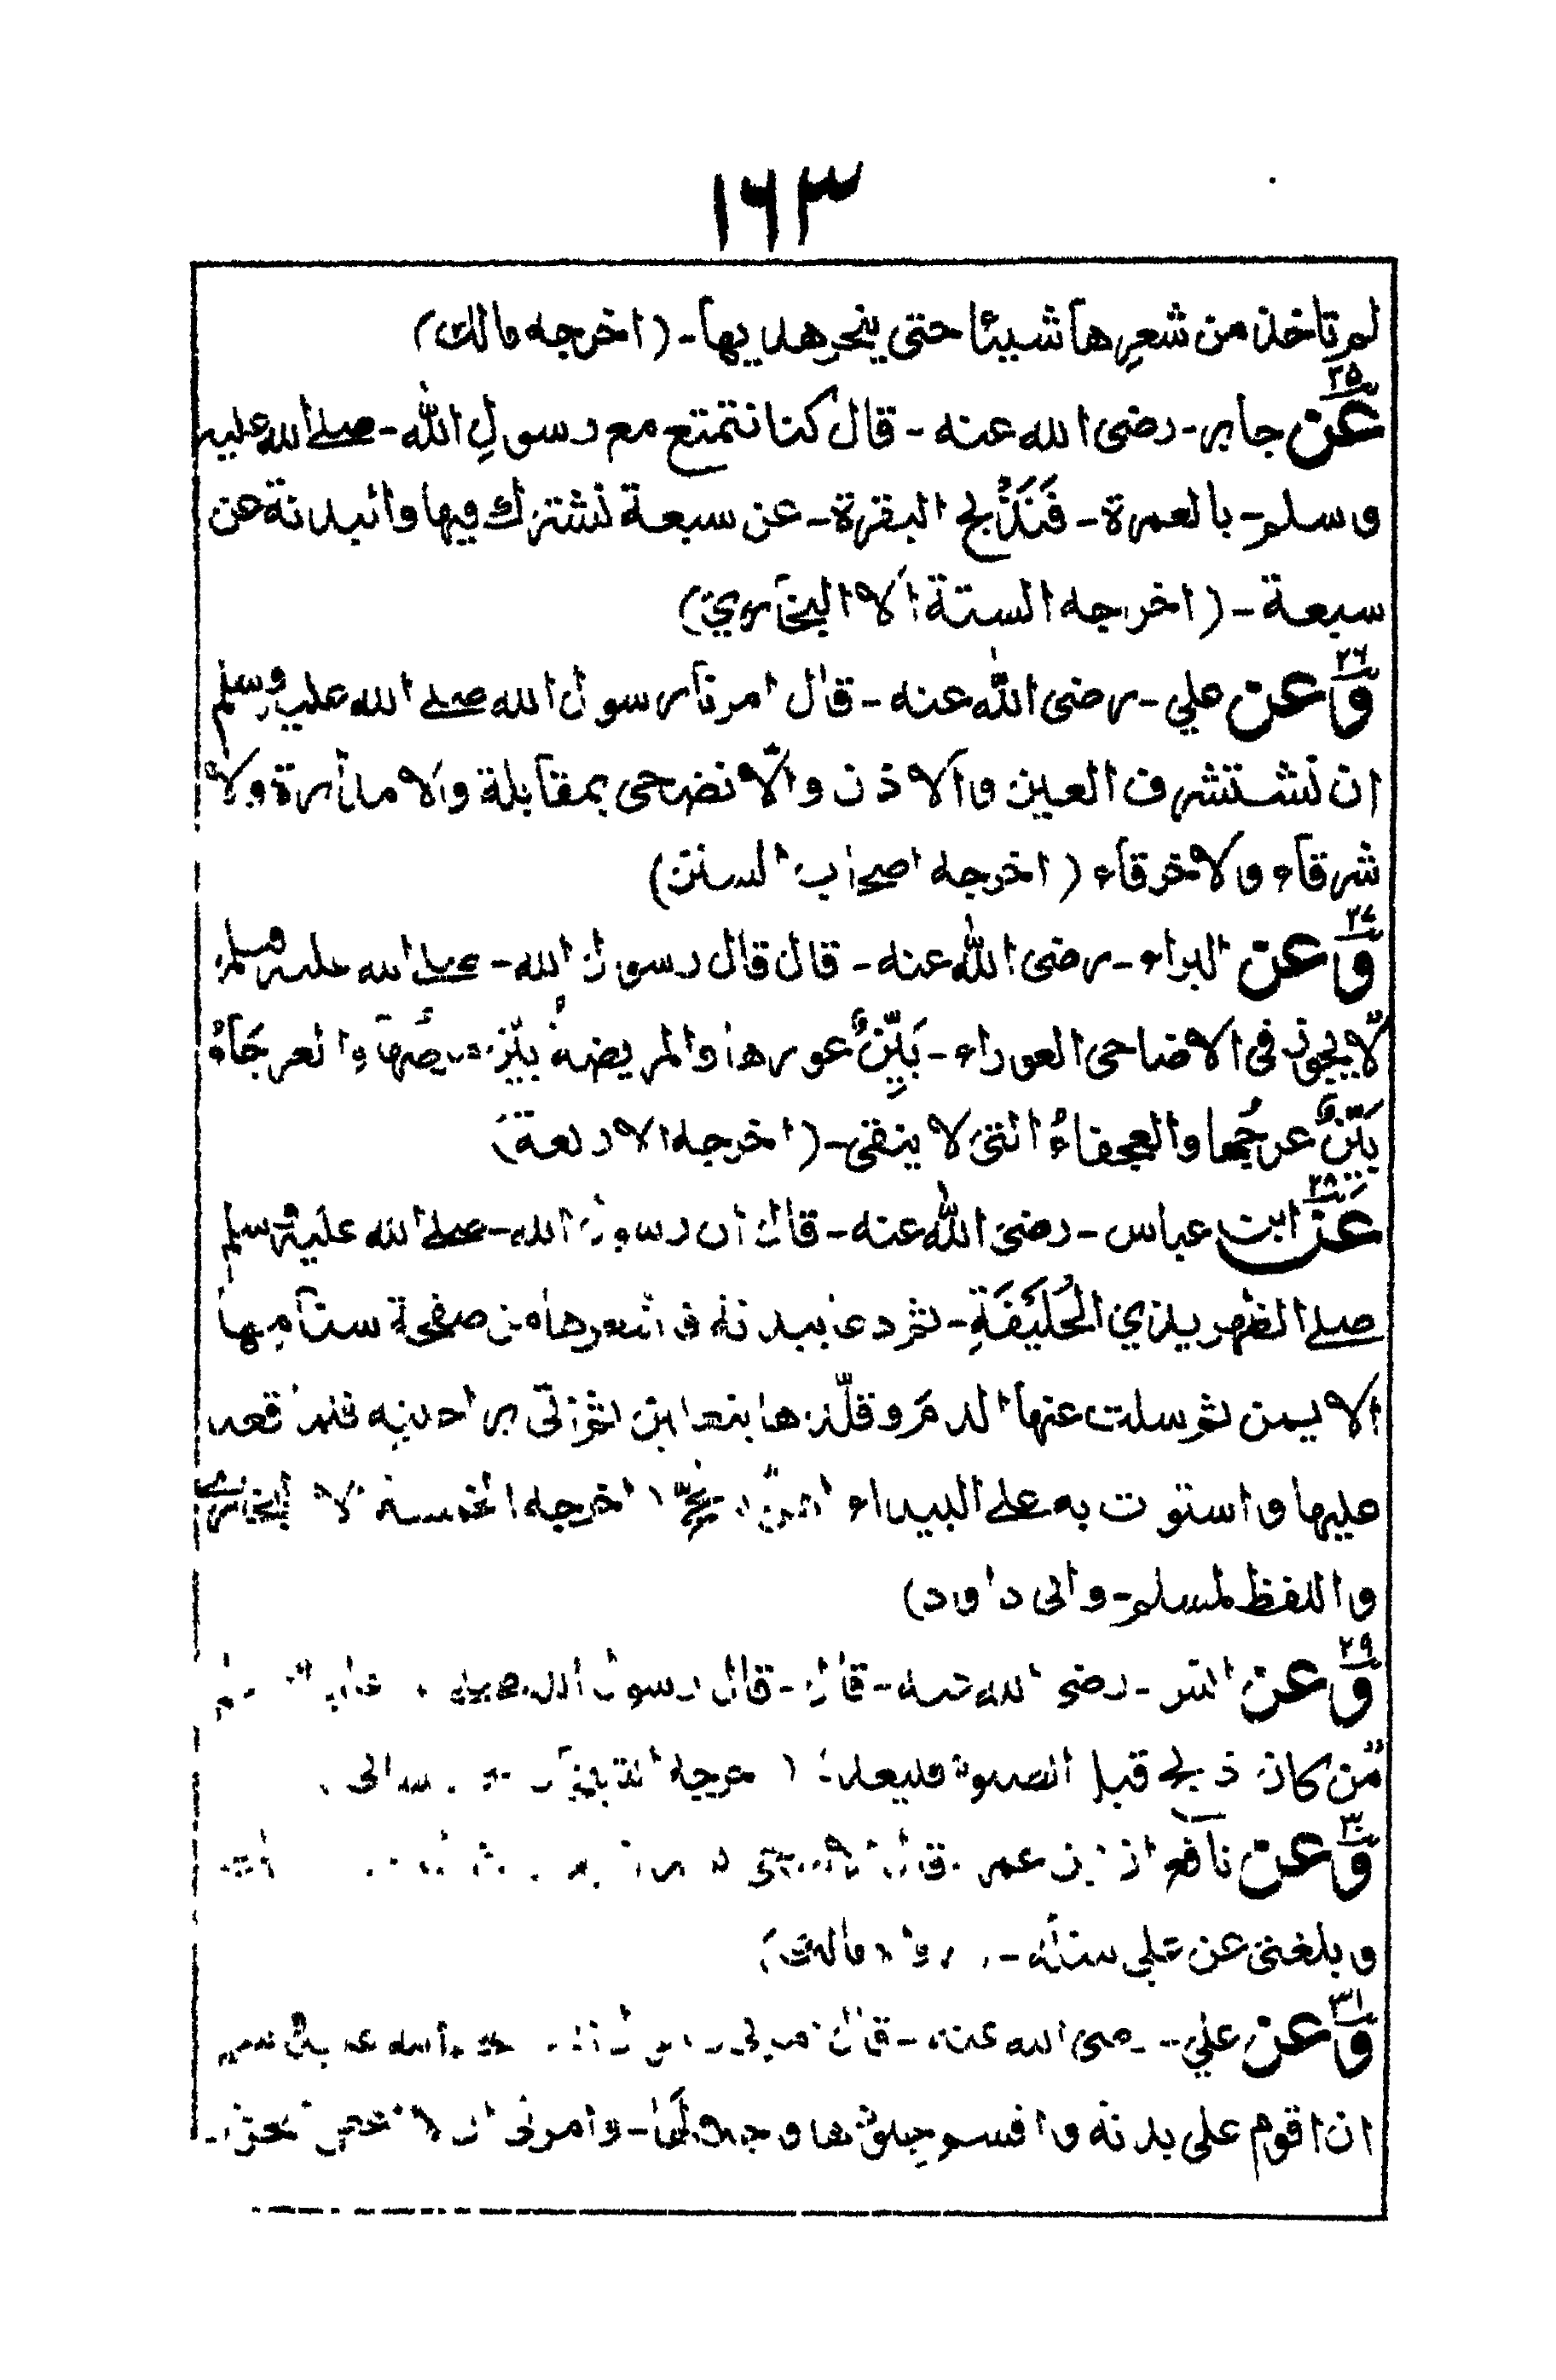 ١٦٣
لم تاخذ من شعرِها شيئا حتى ينحر هديها - (اخرجه مالك)
٢٥
عن جابر - رضى الله عنه - قال كنا نتمتع مع رسولِ الله - صلے الله عليه
وسلم - بالعمرة - فَنَذْبح البقرة - عن سبعة نشترك فيها والبدنة عن
سبعة - (اخرجه الستة الا البخاري)
٢٦
وعن علي - رضى الله عنه - قال امرنا رسول الله صلے الله عليه وسلم
ان نشتشرف العين والاذن والّا نضحى بمقابلة ولا مدابرة ولا
شرقاء ولا خرقاء (اخرجه اصحاب السنن)
٢٧
وعن البراء - رضى الله عنه - قال قال رسول الله - صلے الله عليه وسلم
لا يجوز فى الاضاحى العوراء - بَيِّنٌ عورها والمريضة بيّن مرضها والعرجاءُ
بَيّنٌ عرجُها والعجفاءُ التى لا ينقى - (اخرجه الاربعة)
٢٨
عن ابن عباس - رضى الله عنه - قال ان رسول الله - صلے الله عليه وسلم
صلے الظهر بذي الحُلَيْفَةِ - ثم دعا ببدنة فاشعرها من صفحة سنامِها
الايمن ثم سلت عنها الدمَ وقلّدها بنعلين ثم اتى براحلتِه فلما قعد
عليها واستوت به على البيداء اهلّ بالحجّ (اخرجه الخمسة الا البخاري
واللفظ لمسلم - وابى داود)
٢٩
وعن انس - رضى الله عنه - قال - قال رسول الله صلے
مّن كان ذبح قبل الصلوة فليعد (اخرجه
٣٠
وعن نافع ان ابن عمر - قال
وبلغنى عن على مثله - رواه مالك)
٣١
وعن علي - رضى الله عنه - قال امرنى رسول الله
ان اقوم على بدنه واقسم جلودها وجلالَها - وامرنى ان لا